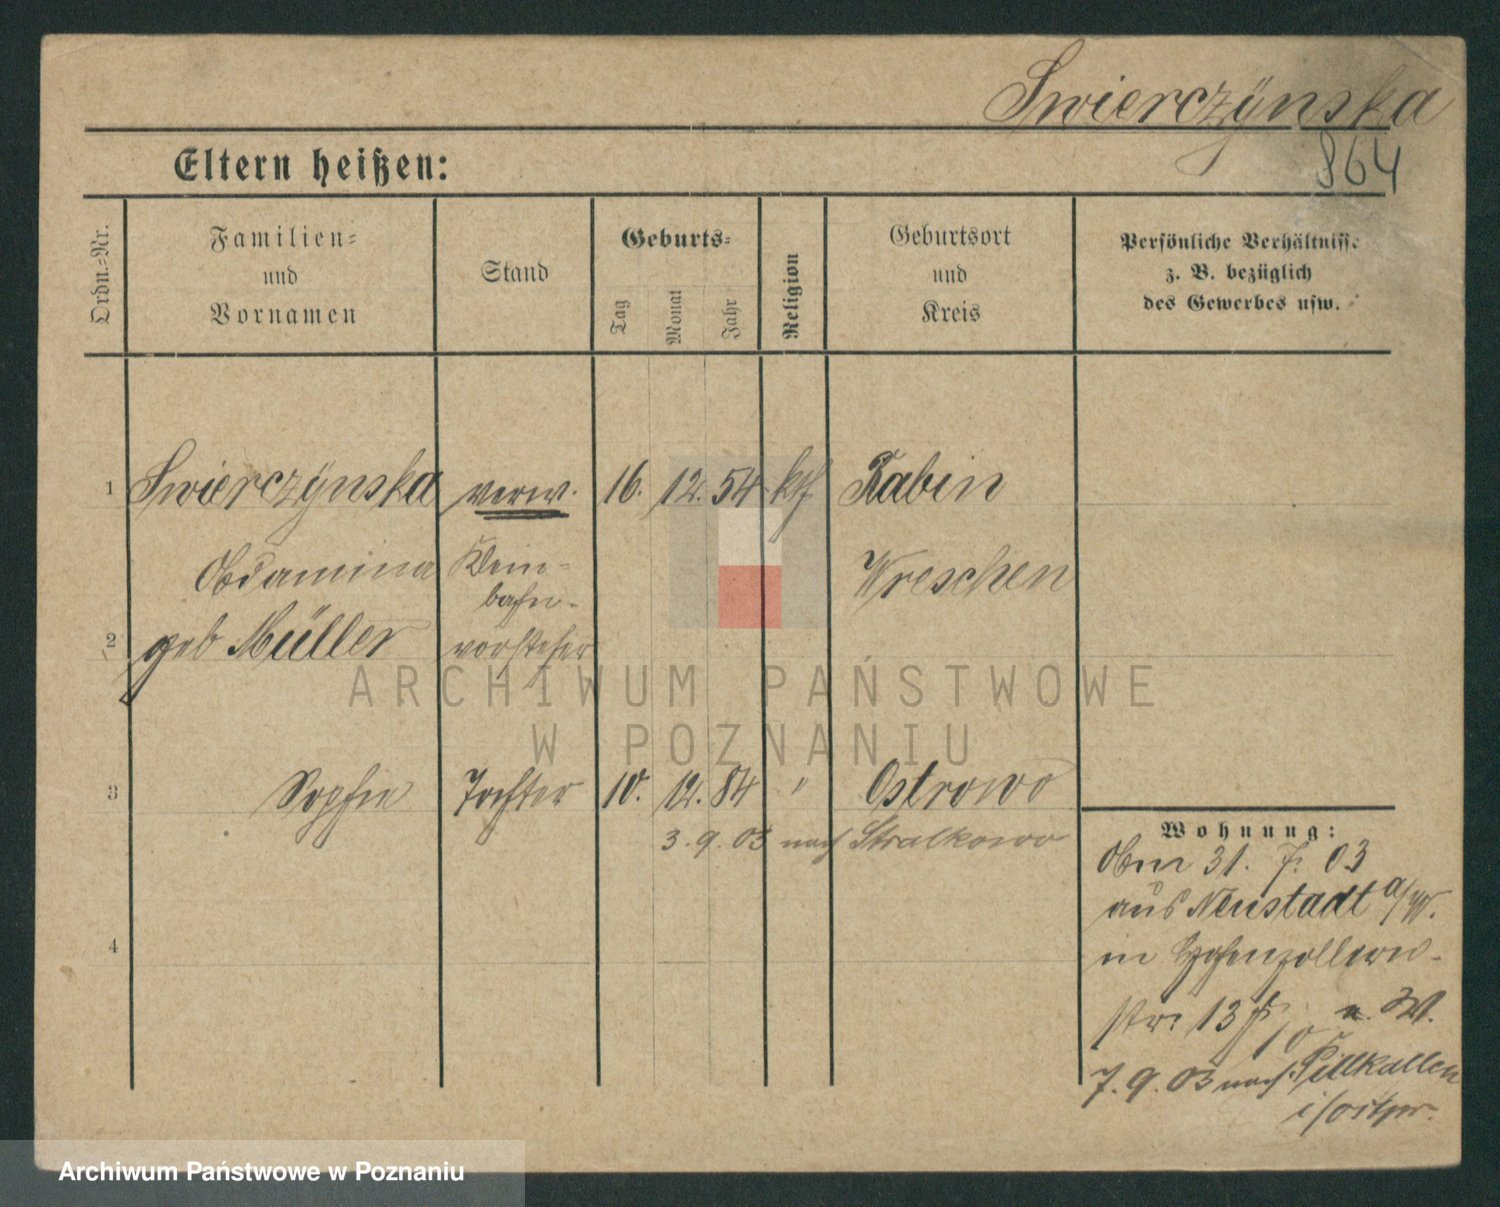 Swierczÿnska
864
Eltern heißen:
Ordn.=Nr.
Familien=
und
Vornamen
Stand
Geburts=
Tag
Monat
Jahr
Religion
Geburtsort
und
Kreis
Persönliche Verhältnisse
z. B. bezüglich
des Gewerbes usw.
1 Swierczÿnska verw. 16. 12. 54 kth Babin
Klein= Wreschen
bahn-
2 geb Müller vorsteher
3 Sophie Tochter 10. 12. 84 " Ostrowo
3. 9. 03 nach Stralkowo
4
Wohnung:
31. 7. 03
aus Neustadt a/W.
in Hohenzollern-
str. 13
7. 9. 03 nach Pillkallen
i/ostpr.
ARCHIWUM PAŃSTWOWE
W POZNANIU
Archiwum Państwowe w Poznaniu